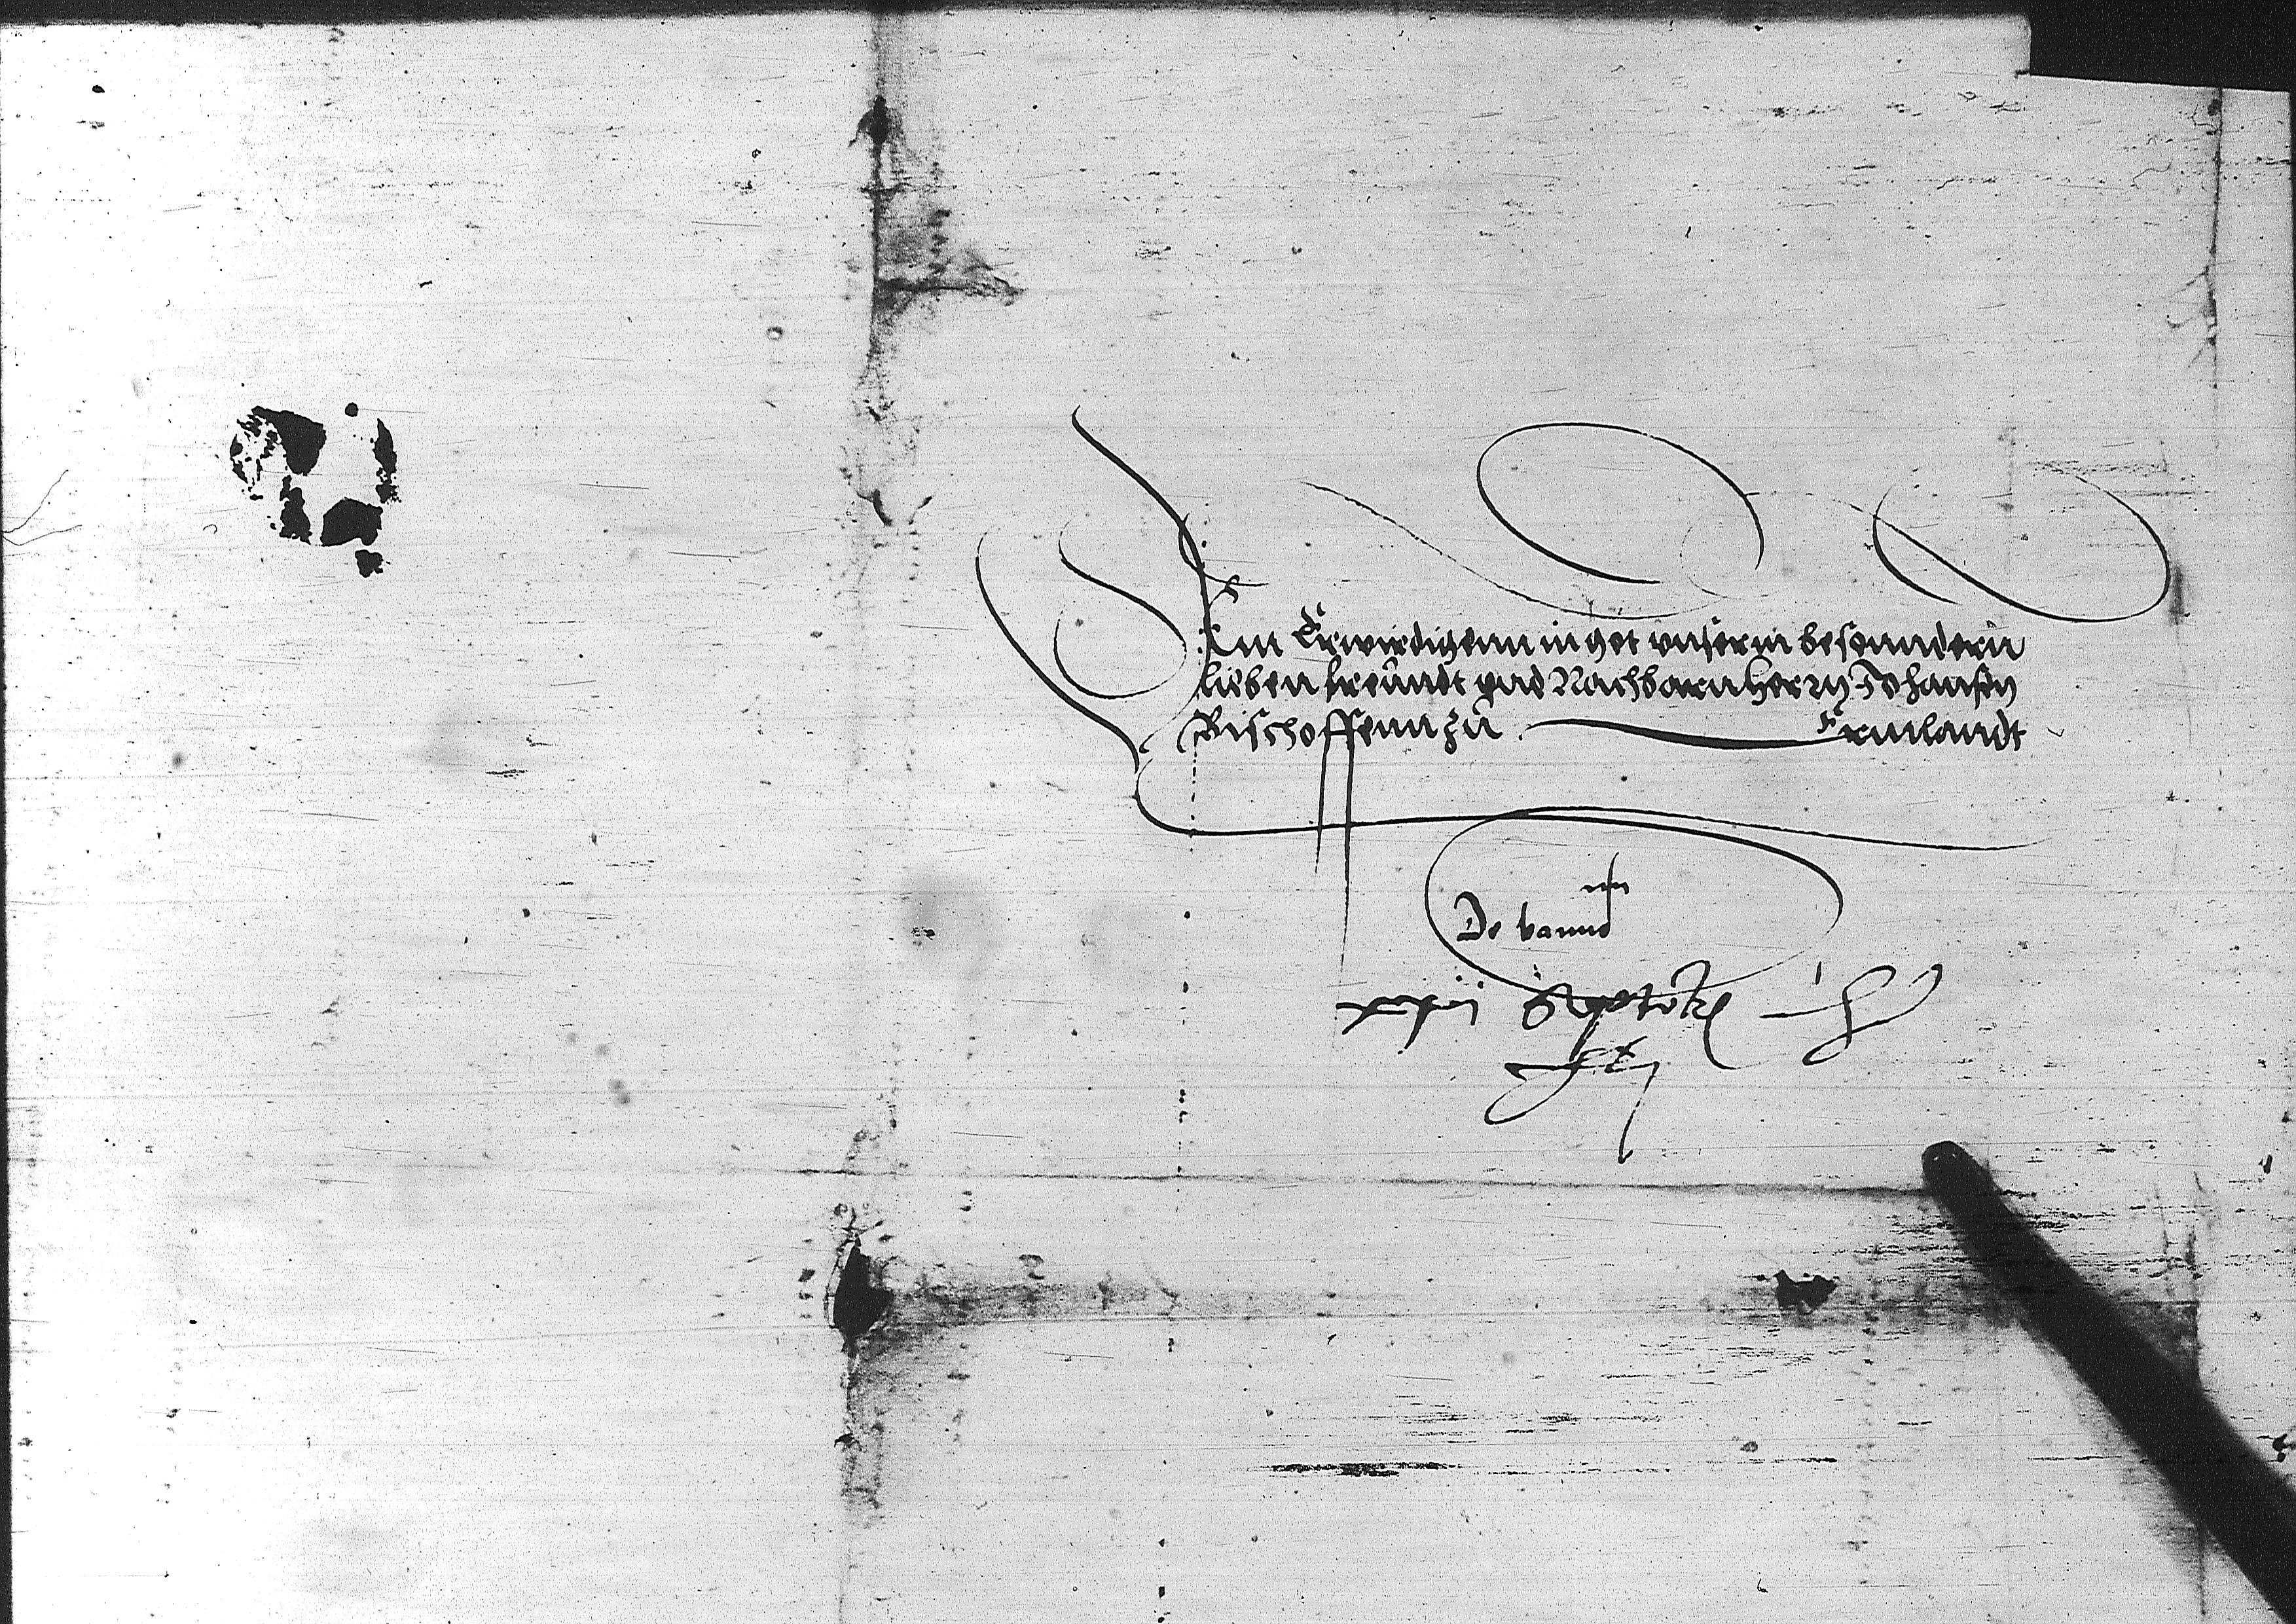 Dem Erwirdigenn in got vnserm besonndern
lieben freundt vnd Nachbarn hern Johansen
Bischoffenn zu Ermlandt
De bannn
xxvij Octobr